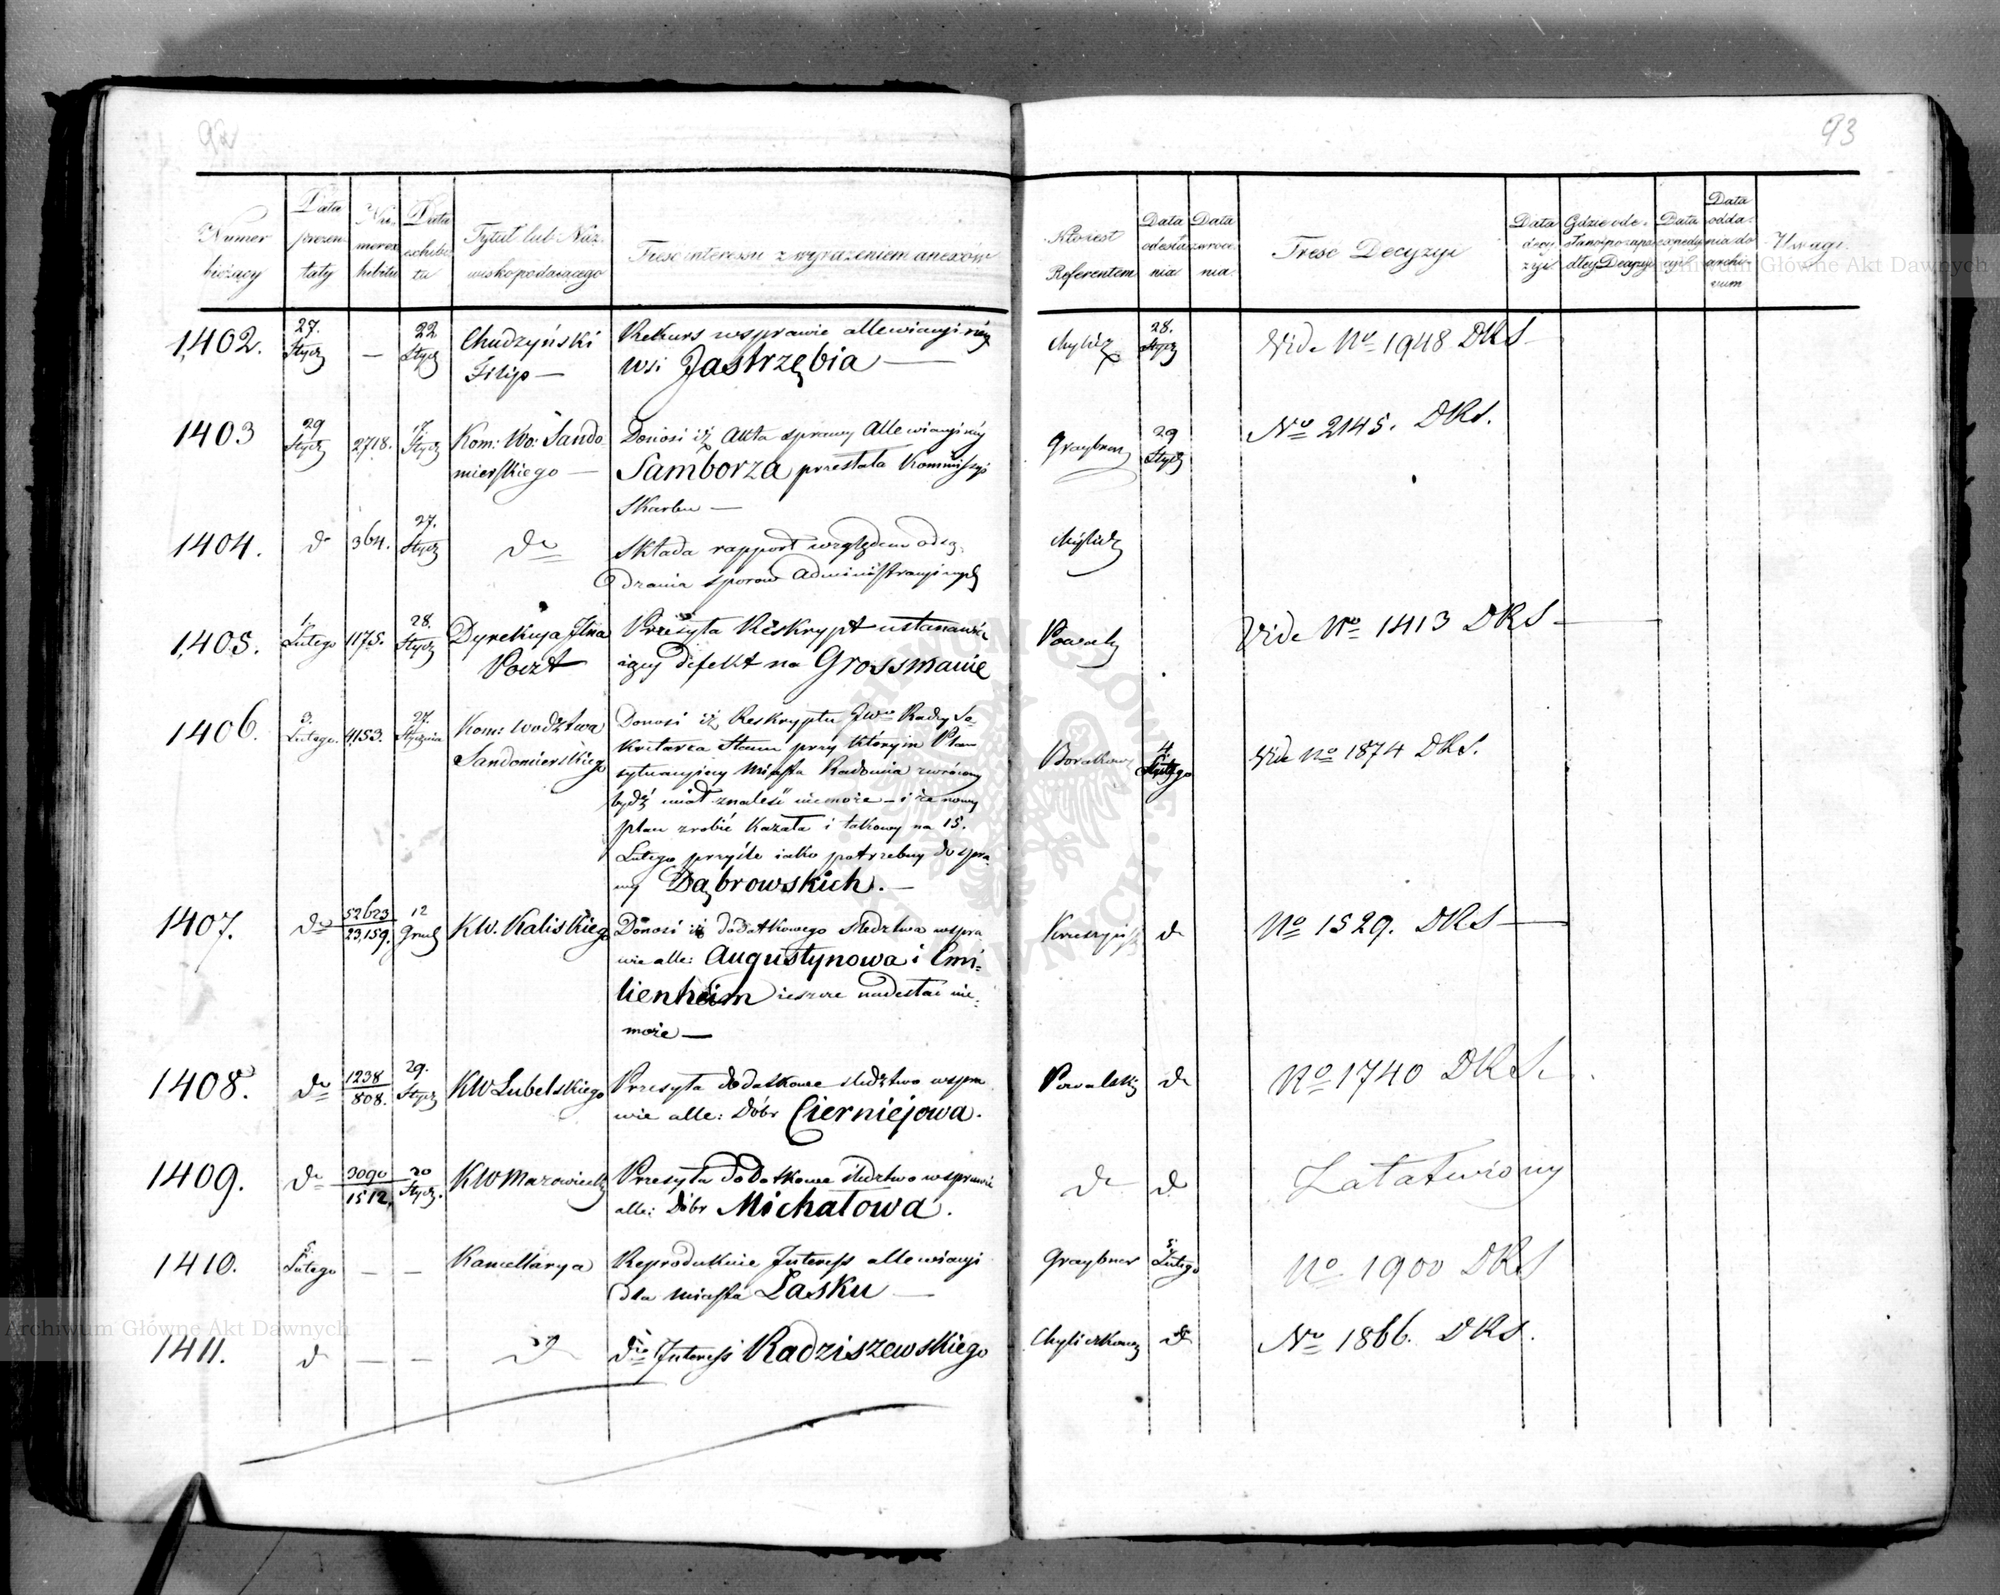 92
93
Numer bieżący
Data prezentaty
Numer exhibitu
Data exhibitu
Tytuł lub Nazwisko podaiącego
Treść interessu z wyrażeniem anexów
Kto iest Referentem
Data odesłania
Data zwrócenia
Treść Decyzyi
Data decyzyi
Gdzie odesłano po zapadłey Decyzyi
Data expedycyi
Data oddania do archivum
Uwagi
1402. 27. Stycz — 22 Stycz Chudzyński Filip — Rekurs wsprawie allewiacyiney
wsi Jastrzębia — 28. Stycz Vide No 1948 DKS
1403 29 Stycz 2718. 17. Stycz Kom: Wo: Sandomierskiego — Donosi iż Akta sprawy Allewiacyiney
Samborza przesłała Kommissyi
Skarbu — Graybner 29 Stycz No 2145. DKS.
1404. do 364. 27. Stycz do Składa rapport względem osą-
dzania sporów Administracyinych
1405. 1 Lutego 1175. 28. Stycz Dyrekcya Jlna Poczt Przesyła Reskrypt ustanawia
iący defekt na Grossmanie Vide No 1413 DKS —
1406. 3. Lutego. 4153. 27. Stycznia Kom: Wodztwa Sandomierskiego Donosi iż Reskryptu Radcy Se-
kretarza Stanu przy którym Plan
sytuacyiny Miasta Radomia zwrócony
bydź miał znaleść niemoże — i że nowy
plan zrobić kazała i takowy na 15.
Lutego przyśle iako potrzebny do spra-
wy Dąbrowskich. — 4 Lutego Vide No 1874 DKS.
1407. do 52623 / 23,159. 12 Grud KW. Kaliskiego Donosi iż dodatkowego śledztwa wspra
wie alle: Augustynowa i Emi-
lienheim ieszcze nadesłać nie-
może — do No 1529. DKS —
1408. do 1238 / 808. 29. Stycz KW Lubelskiego Przesyła dodatkowe śledztwo wspra
wie alle: Dóbr Cierniejowa. Powalski do No 1740 DKS.
1409. do 3090 / 1512. 20 Stycz. KW Mazowieck Przesyła dodatkowe śledztwo wsprawie
alle: Dóbr Michałowa. do do Załatwiony
1410. 5. Lutego — — Kancellarya Reprodukuie Interess allewiacyi
dla Miasta Łasku — Graybner 5. Lutego No 1900 DKS
1411. do — — do dto Interess Radziszewskiego Chyliczkowski do No 1866. DKS.
Archiwum Główne Akt Dawnych
Archiwum Główne Akt Dawnych